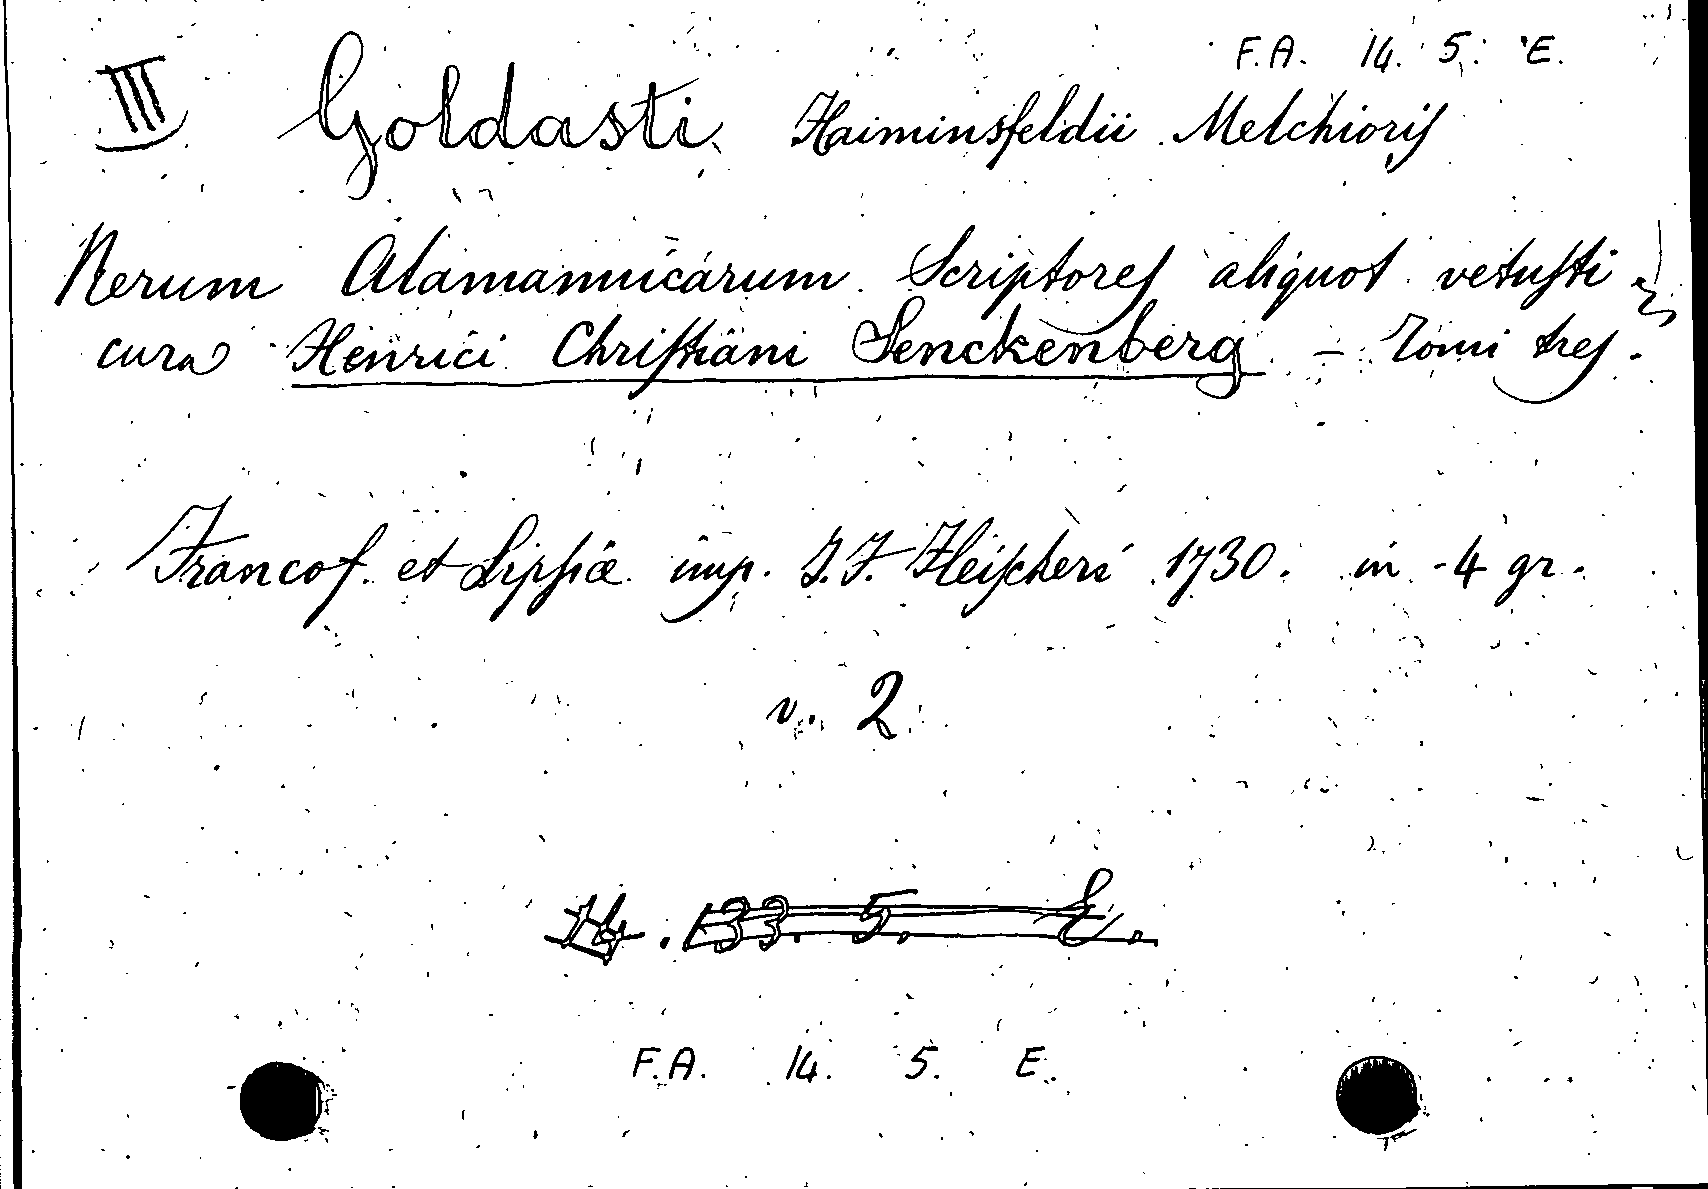 F.A. 14. 5. E.
III Goldasti Haiminsfeldii Melchioris
Rerum Alamannicarum Scriptores aliquot vetusti
cura Henrici Christiani Senckenberg. – Tomi tres.
Francof. et Lipsiæ imp. J. F. Fleischeri 1730. in-4 gr.
v. 2
14. 133. 5. E.
F.A. 14. 5. E.